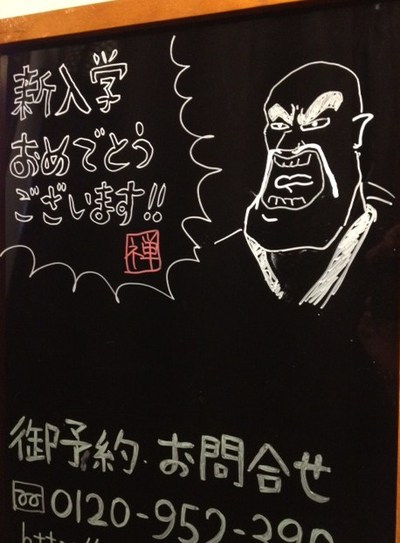 新入学
おめでとう
ございます!!
禅
御予約・お問合せ
0120-952-390
http://